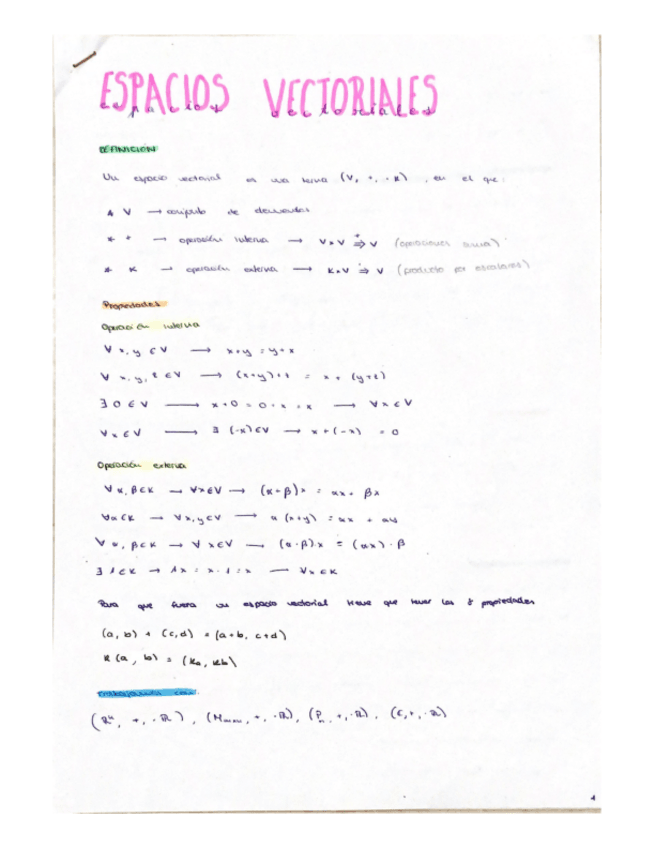 ESPACIOS VECTORIALES
espacios vectoriales
DEFINICIÓN
Un espacio vectorial es una terna (V, +, ·K), en el que:
* V → conjunto de elementos
* + → operación interna → V×V ⇒ V (operaciones suma)
* K → operación externa → K×V ⇒ V (producto por escalares)
Propiedades
Operación interna
∀ x, y ∈ V → x+y = y+x
∀ x, y, z ∈ V → (x+y)+z = x+(y+z)
∃ 0 ∈ V → x+0 = 0+x = x → ∀x ∈ V
∀x ∈ V → ∃ (-x) ∈ V → x+(-x) = 0
Operación externa
∀ α, β ∈ K → ∀x ∈ V → (α+β)x = αx + βx
∀α ∈ K → ∀x, y ∈ V → α(x+y) = αx + αy
∀ α, β ∈ K → ∀ x ∈ V → (α·β)·x = (αx)·β
∃ 1 ∈ K → 1x = x·1 = x → ∀x ∈ K
Para que fuera un espacio vectorial tiene que tener las 8 propiedades
(a, b) + (c, d) = (a+b, c+d)
K(a, b) = (Ka, Kb)
Trabajando con:
(ℝⁿ, +, ·ℝ), (Mₘₓₙ, +, ·ℝ), (Pₙ, +, ·ℝ), (C, +, ·ℝ)
1